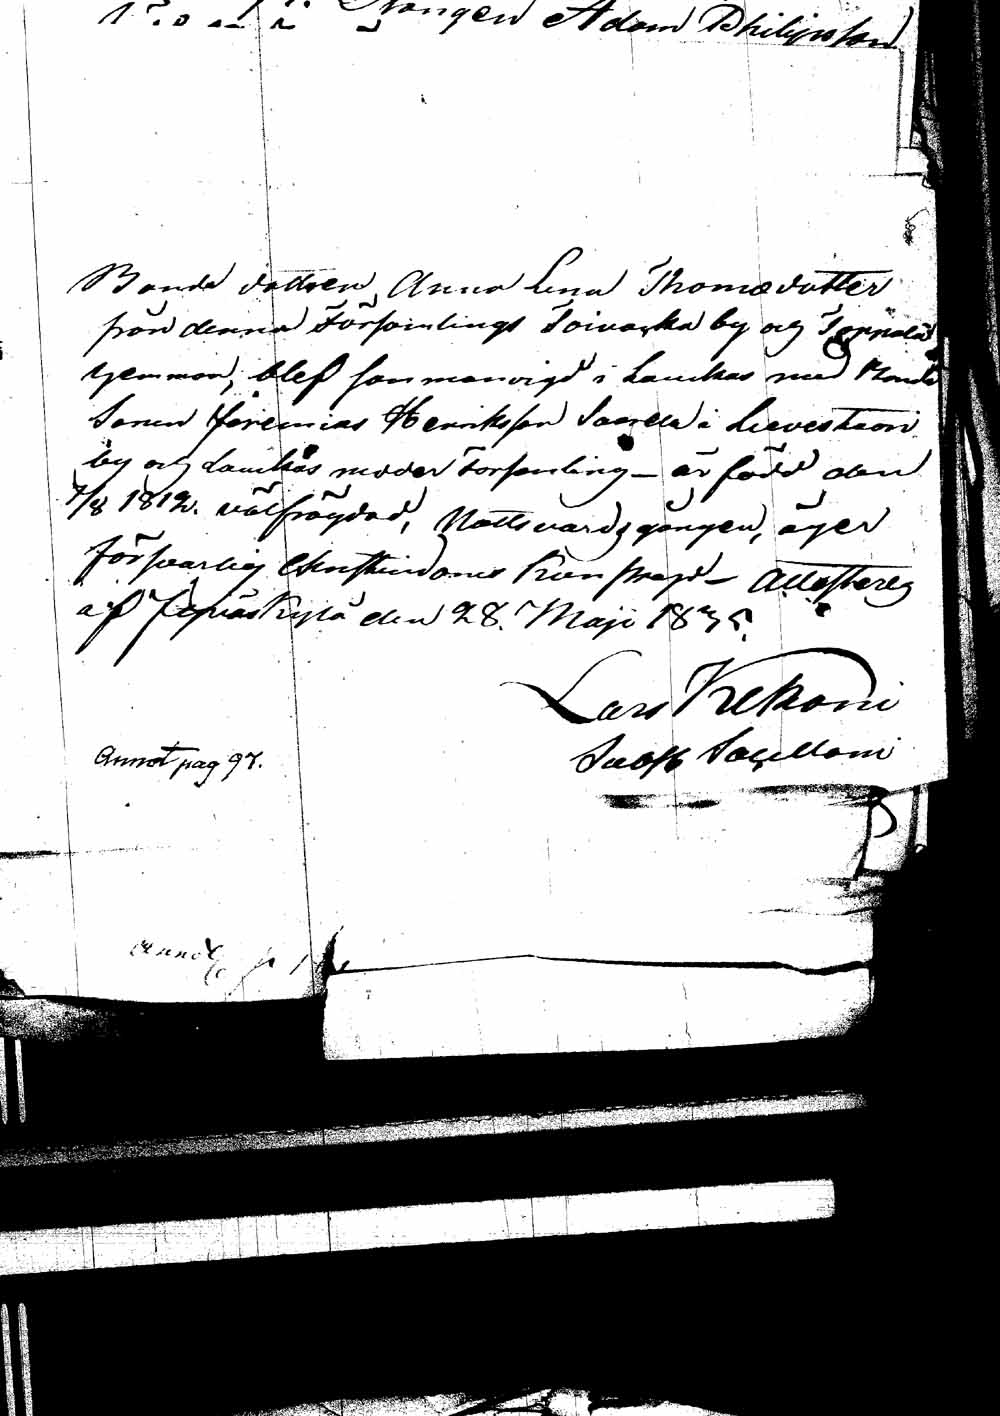 Drängen Adam Philipsson
Bonde dottren Anna Lena Thomædotter
från denna Församlings Toivakka by och
hemman, blef sammanvigd i Laukas med Bonde
Sonen Jeremias Henriksson Saarela i Lievestuori
by och Laukas moder Församling – är född den
7/8 1812. välfrägdad, Nattvardsgången, äger
försvarlig Christendoms kunskap – Attesteras
af Jyväskylä den 28. Maji 1835.
Lars Kekoni
Annot pag 97.
Annot p